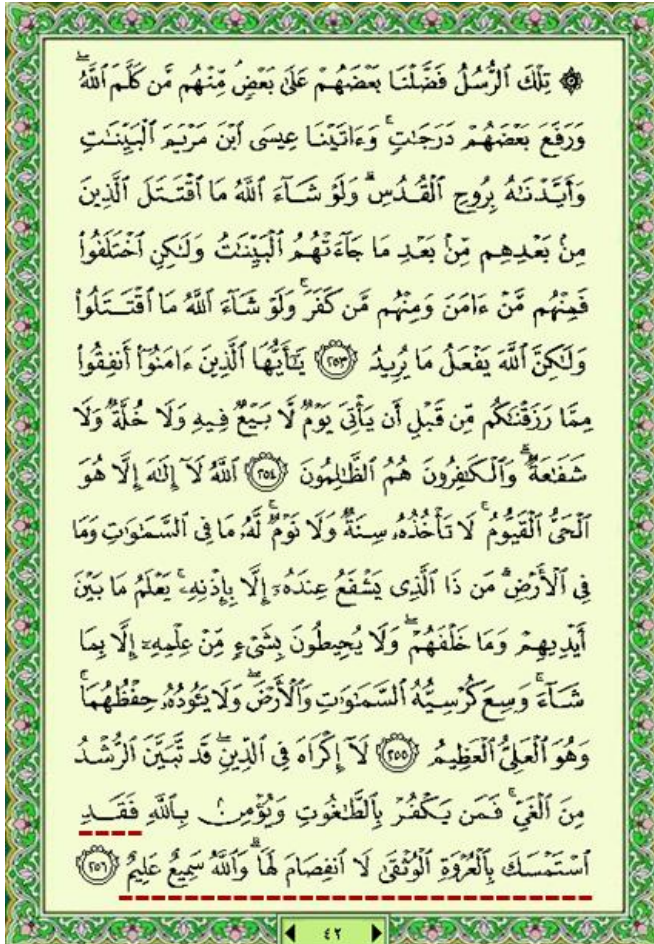 ۞ تِلْكَ ٱلرُّسُلُ فَضَّلْنَا بَعْضَهُمْ عَلَىٰ بَعْضٍۘ مِّنْهُم مَّن كَلَّمَ ٱللَّهُۖ
وَرَفَعَ بَعْضَهُمْ دَرَجَٰتٍۚ وَءَاتَيْنَا عِيسَى ٱبْنَ مَرْيَمَ ٱلْبَيِّنَٰتِ
وَأَيَّدْنَٰهُ بِرُوحِ ٱلْقُدُسِۗ وَلَوْ شَآءَ ٱللَّهُ مَا ٱقْتَتَلَ ٱلَّذِينَ
مِنۢ بَعْدِهِم مِّنۢ بَعْدِ مَا جَآءَتْهُمُ ٱلْبَيِّنَٰتُ وَلَٰكِنِ ٱخْتَلَفُوا۟
فَمِنْهُم مَّنْ ءَامَنَ وَمِنْهُم مَّن كَفَرَۚ وَلَوْ شَآءَ ٱللَّهُ مَا ٱقْتَتَلُوا۟
وَلَٰكِنَّ ٱللَّهَ يَفْعَلُ مَا يُرِيدُ ٢٥٣ يَٰٓأَيُّهَا ٱلَّذِينَ ءَامَنُوٓا۟ أَنفِقُوا۟
مِمَّا رَزَقْنَٰكُم مِّن قَبْلِ أَن يَأْتِىَ يَوْمٌ لَّا بَيْعٌ فِيهِ وَلَا خُلَّةٌ وَلَا
شَفَٰعَةٌۗ وَٱلْكَٰفِرُونَ هُمُ ٱلظَّٰلِمُونَ ٢٥٤ ٱللَّهُ لَآ إِلَٰهَ إِلَّا هُوَ
ٱلْحَىُّ ٱلْقَيُّومُۚ لَا تَأْخُذُهُۥ سِنَةٌ وَلَا نَوْمٌۚ لَّهُۥ مَا فِى ٱلسَّمَٰوَٰتِ وَمَا
فِى ٱلْأَرْضِۗ مَن ذَا ٱلَّذِى يَشْفَعُ عِندَهُۥٓ إِلَّا بِإِذْنِهِۦۚ يَعْلَمُ مَا بَيْنَ
أَيْدِيهِمْ وَمَا خَلْفَهُمْۖ وَلَا يُحِيطُونَ بِشَىْءٍ مِّنْ عِلْمِهِۦٓ إِلَّا بِمَا
شَآءَۚ وَسِعَ كُرْسِيُّهُ ٱلسَّمَٰوَٰتِ وَٱلْأَرْضَۖ وَلَا يَـُٔودُهُۥ حِفْظُهُمَاۚ
وَهُوَ ٱلْعَلِىُّ ٱلْعَظِيمُ ٢٥٥ لَآ إِكْرَاهَ فِى ٱلدِّينِۖ قَد تَّبَيَّنَ ٱلرُّشْدُ
مِنَ ٱلْغَىِّۚ فَمَن يَكْفُرْ بِٱلطَّٰغُوتِ وَيُؤْمِنۢ بِٱللَّهِ فَقَدِ
ٱسْتَمْسَكَ بِٱلْعُرْوَةِ ٱلْوُثْقَىٰ لَا ٱنفِصَامَ لَهَاۗ وَٱللَّهُ سَمِيعٌ عَلِيمٌ ٢٥٦
٤٢